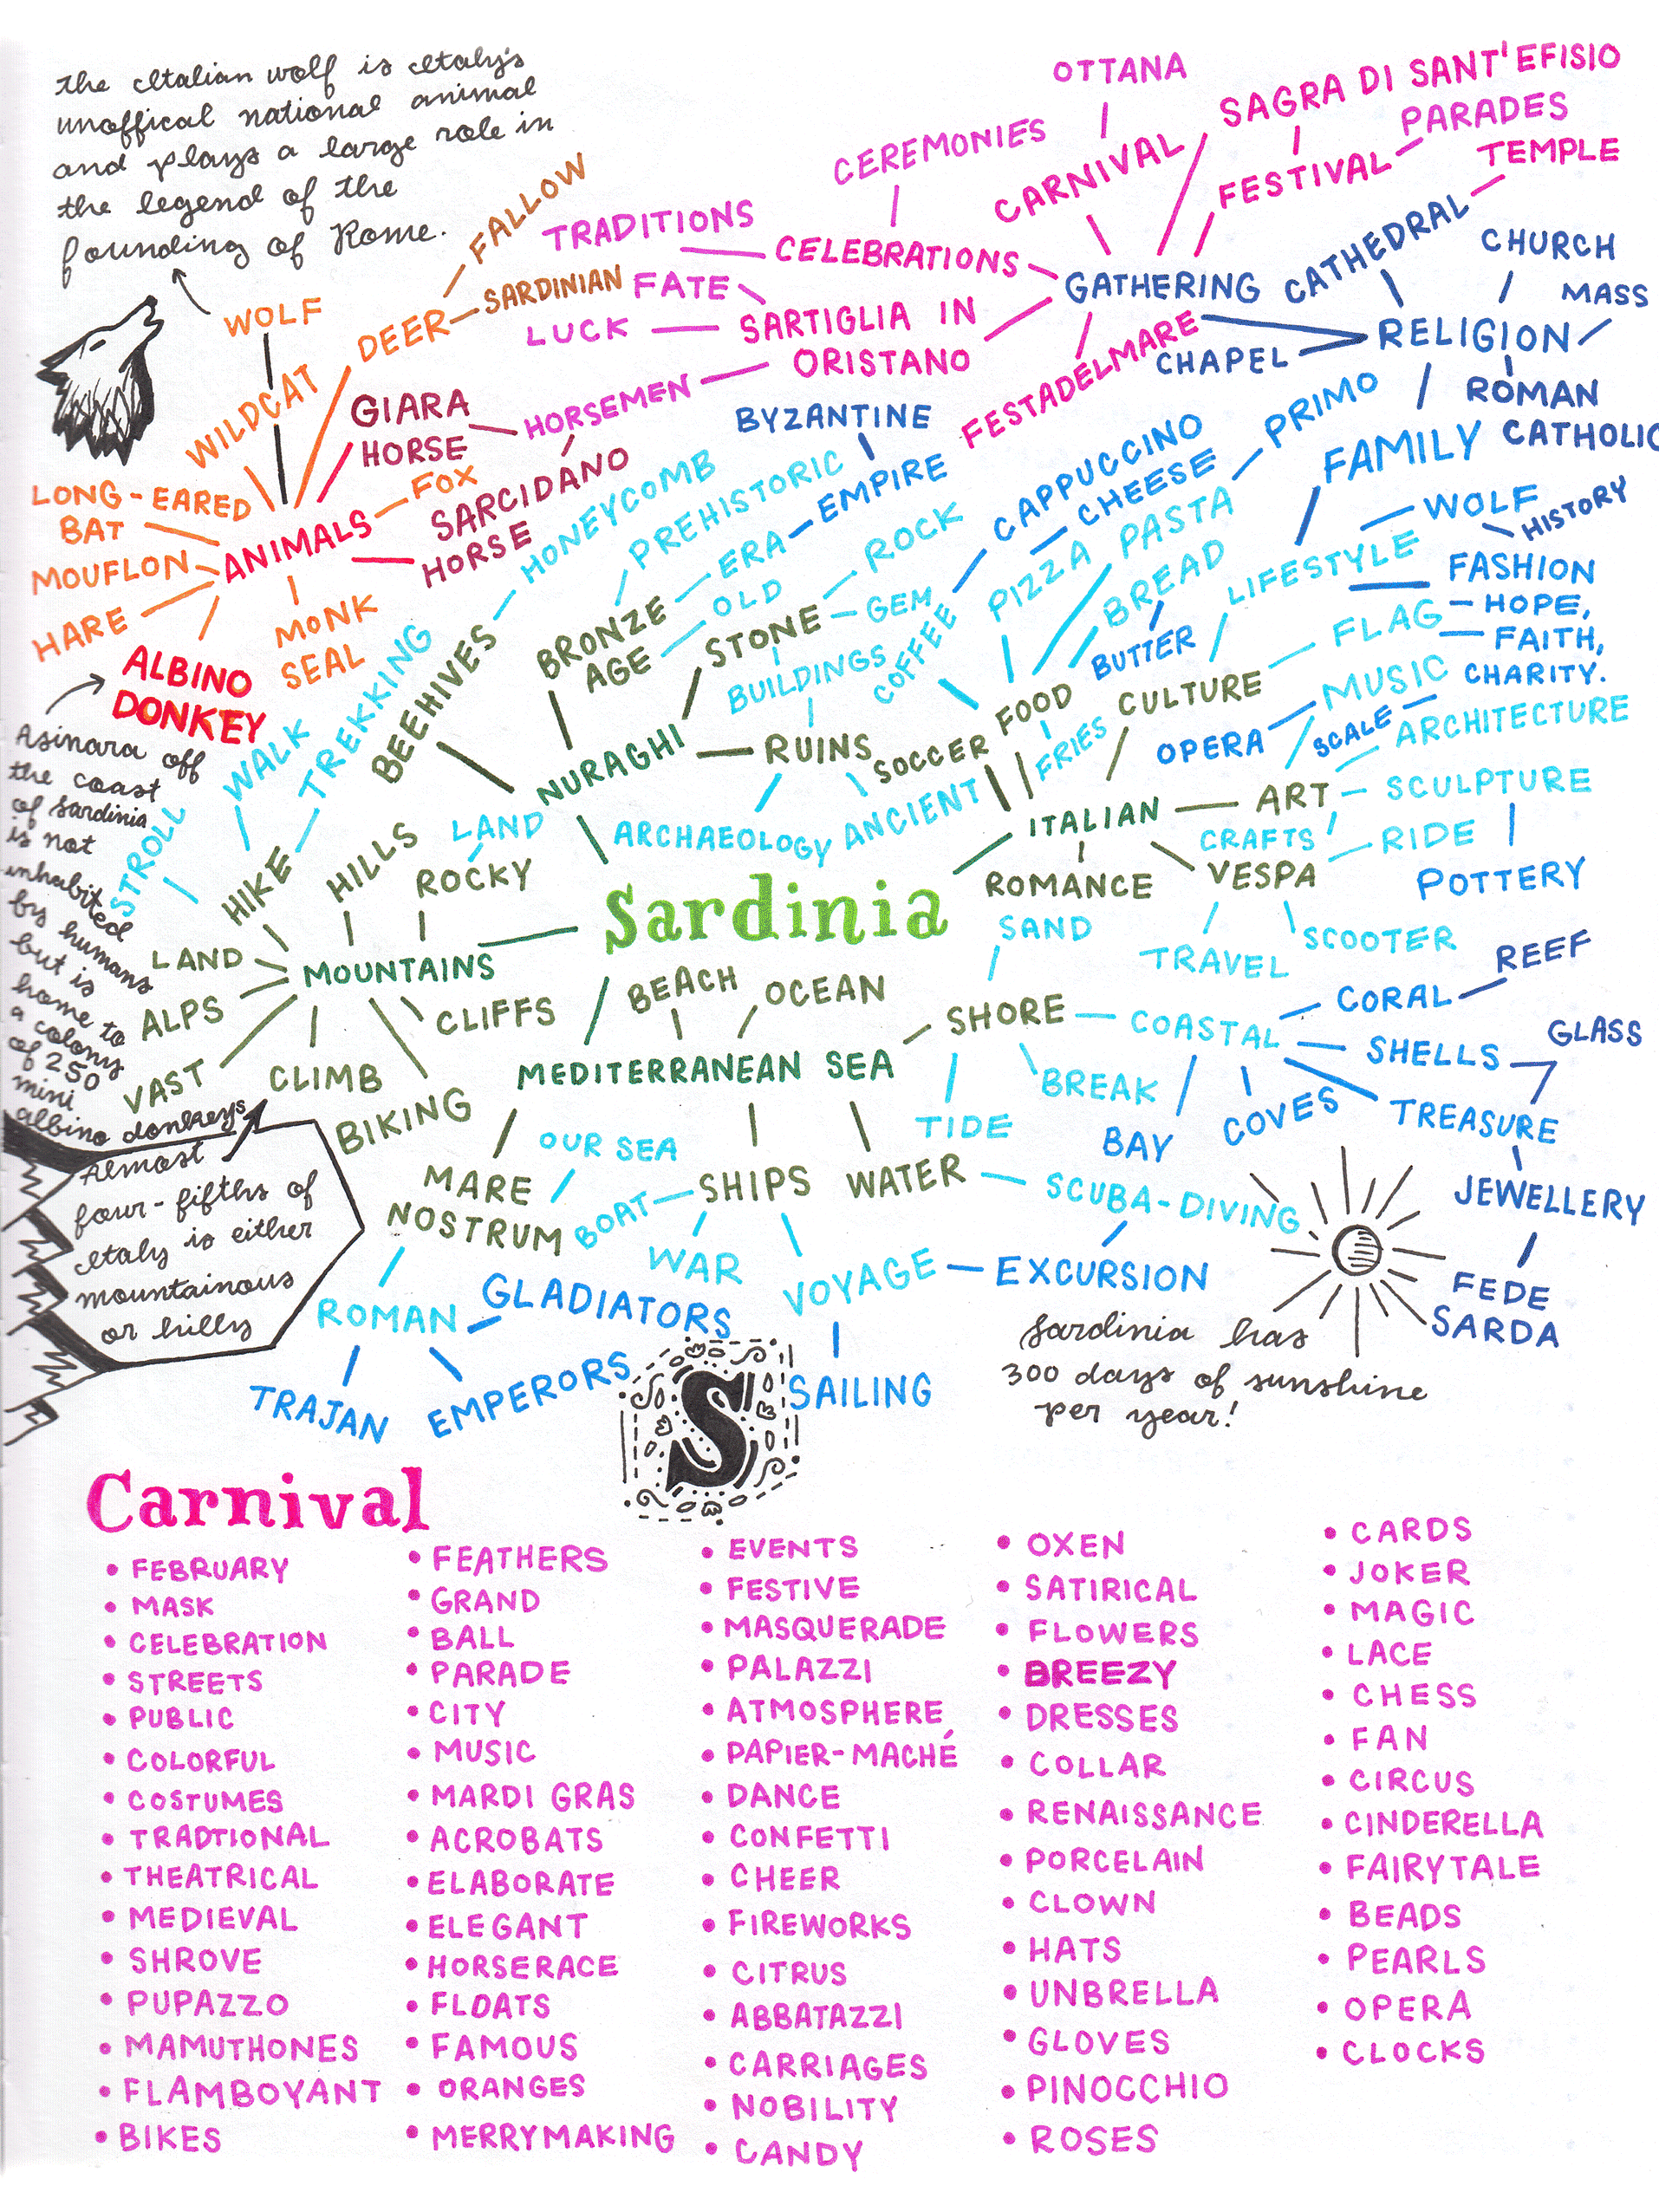 the Italian wolf is Italy's
unoffical national animal
and plays a large role in
the legend of the
founding of Rome.
OTTANA
SAGRA DI SANT'EFISIO
PARADES
CEREMONIES
CARNIVAL
FESTIVAL
TEMPLE
FALLOW
TRADITIONS
CELEBRATIONS
GATHERING
CATHEDRAL
CHURCH
MASS
WOLF
DEER
SARDINIAN
FATE
LUCK
SARTIGLIA IN
ORISTANO
FESTADELMARE
CHAPEL
RELIGION
ROMAN
CATHOLIC
WILDCAT
GIARA
HORSE
HORSEMEN
BYZANTINE
PRIMO
FAMILY
LONG-EARED
BAT
FOX
SARCIDANO
HORSE
HONEYCOMB
PREHISTORIC
EMPIRE
ERA
CAPPUCCINO
CHEESE
WOLF
HISTORY
ANIMALS
MOUFLON
HARE
MONK
SEAL
ALBINO
DONKEY
BRONZE
AGE
OLD
STONE
ROCK
GEM
PIZZA
PASTA
BREAD
BUTTER
LIFESTYLE
FASHION
FLAG
HOPE,
FAITH,
CHARITY.
Asinara off
the coast
of Sardinia
is not
inhabited
by humans
but is
home to
a colony
of 250
mini
albino donkeys
STROLL
WALK
TREKKING
BEEHIVES
NURAGHI
BUILDINGS
RUINS
COFFEE
SOCCER
FOOD
FRIES
CULTURE
OPERA
MUSIC
SCALE
ARCHITECTURE
ARCHAEOLOGY
ANCIENT
ITALIAN
ART
SCULPTURE
CRAFTS
RIDE
POTTERY
HIKE
HILLS
LAND
ROCKY
Sardinia
ROMANCE
VESPA
TRAVEL
SCOOTER
LAND
MOUNTAINS
ALPS
VAST
CLIMB
BIKING
CLIFFS
BEACH
OCEAN
MEDITERRANEAN SEA
SAND
SHORE
COASTAL
CORAL
REEF
SHELLS
GLASS
BREAK
TIDE
BAY
COVES
TREASURE
JEWELLERY
FEDE
SARDA
Almost
four-fifths of
Italy is either
mountainous
or hilly
MARE
NOSTRUM
OUR SEA
BOAT
SHIPS
WATER
SCUBA-DIVING
WAR
VOYAGE
EXCURSION
ROMAN
GLADIATORS
TRAJAN
EMPERORS
SAILING
S
Sardinia has
300 days of sunshine
per year!
Carnival
• FEBRUARY
• MASK
• CELEBRATION
• STREETS
• PUBLIC
• COLORFUL
• COSTUMES
• TRADTIONAL
• THEATRICAL
• MEDIEVAL
• SHROVE
• PUPAZZO
• MAMUTHONES
• FLAMBOYANT
• BIKES
• FEATHERS
• GRAND
• BALL
• PARADE
• CITY
• MUSIC
• MARDI GRAS
• ACROBATS
• ELABORATE
• ELEGANT
• HORSERACE
• FLOATS
• FAMOUS
• ORANGES
• MERRYMAKING
• EVENTS
• FESTIVE
• MASQUERADE
• PALAZZI
• ATMOSPHERE
• PAPIER-MACHÉ
• DANCE
• CONFETTI
• CHEER
• FIREWORKS
• CITRUS
• ABBATAZZI
• CARRIAGES
• NOBILITY
• CANDY
• OXEN
• SATIRICAL
• FLOWERS
• BREEZY
• DRESSES
• COLLAR
• RENAISSANCE
• PORCELAIN
• CLOWN
• HATS
• UNBRELLA
• GLOVES
• PINOCCHIO
• ROSES
• CARDS
• JOKER
• MAGIC
• LACE
• CHESS
• FAN
• CIRCUS
• CINDERELLA
• FAIRYTALE
• BEADS
• PEARLS
• OPERA
• CLOCKS